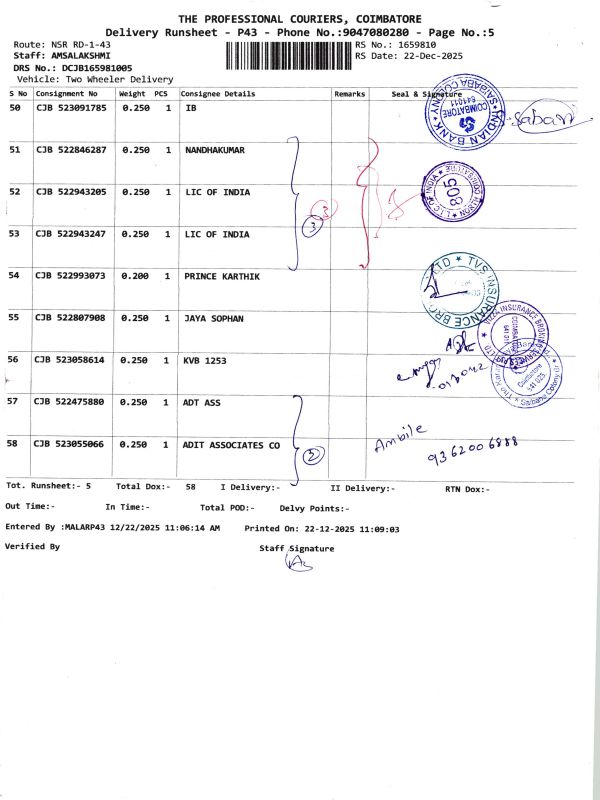 THE PROFESSIONAL COURIERS, COIMBATORE
Delivery Runsheet - P43 - Phone No.:9047080280 - Page No.:5
Route: NSR RD-1-43 RS No.: 1659810
Staff: AMSALAKSHMI RS Date: 22-Dec-2025
DRS No.: DCJB165981005
Vehicle: Two Wheeler Delivery
S No Consignment No Weight PCS Consignee Details Remarks Seal & Signature
50 CJB 523091785 0.250 1 IB
INDIAN BANK COIMBATORE 641011 SAIBABA COLONY
51 CJB 522846287 0.250 1 NANDHAKUMAR
52 CJB 522943205 0.250 1 LIC OF INDIA
3 3
L I C OF INDIA 805
53 CJB 522943247 0.250 1 LIC OF INDIA
54 CJB 522993073 0.200 1 PRINCE KARTHIK
TVS INSURANCE BRO LTD
55 CJB 522807908 0.250 1 JAYA SOPHAN
INSURANCE BROKING
56 CJB 523058614 0.250 1 KVB 1253
Coimbatore 641 025 Saibaba Colony
57 CJB 522475880 0.250 1 ADT ASS
58 CJB 523055066 0.250 1 ADIT ASSOCIATES CO
2
9362006888
Tot. Runsheet:- 5 Total Dox:- 58 I Delivery:- II Delivery:- RTN Dox:-
Out Time:- In Time:- Total POD:- Delvy Points:-
Entered By :MALARP43 12/22/2025 11:06:14 AM Printed On: 22-12-2025 11:09:03
Verified By Staff Signature